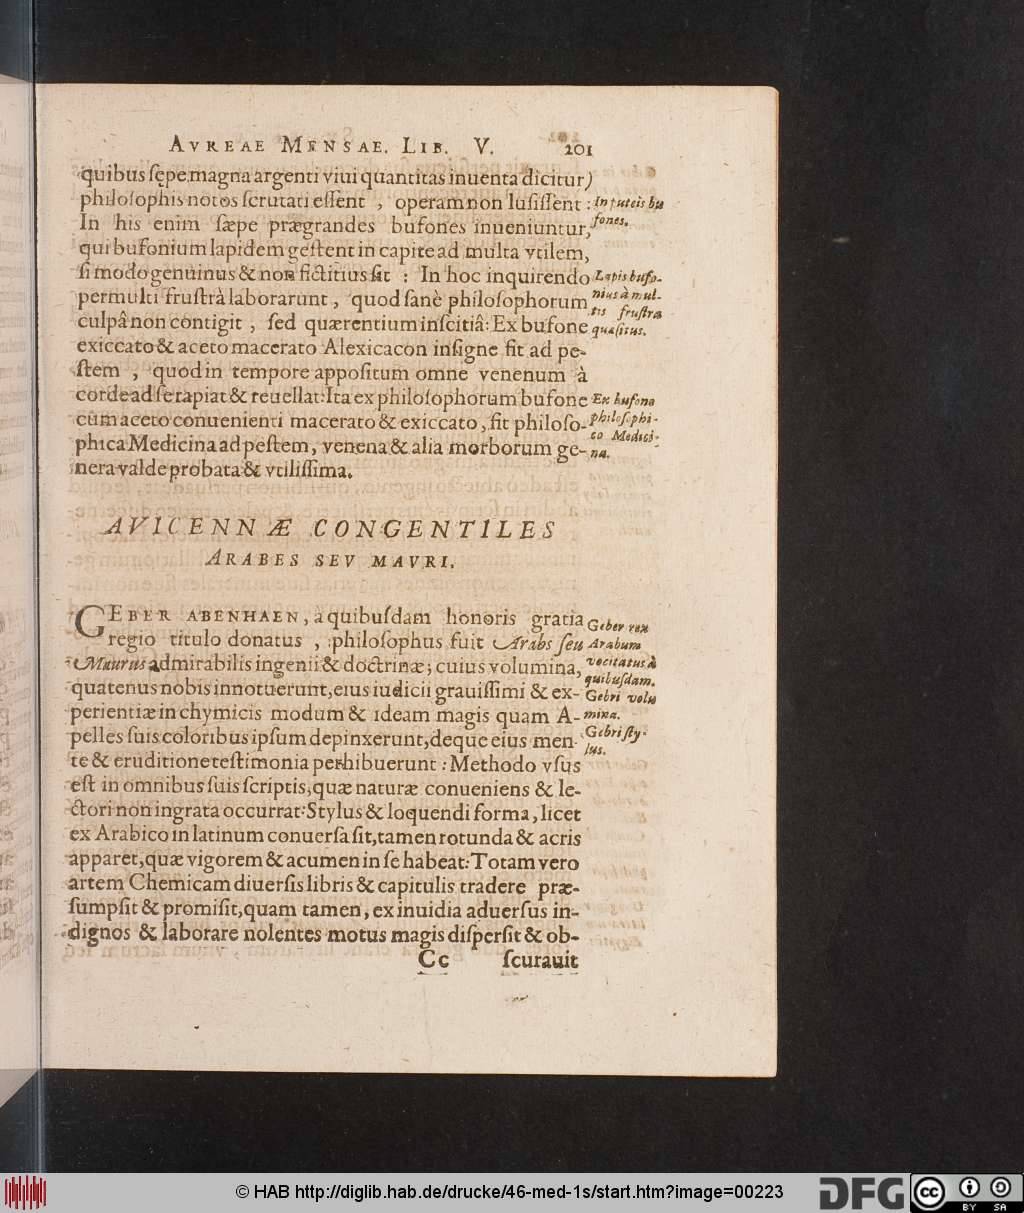 AVREAE MENSAE. LIB. V. 201
quibus sępe magna argenti viui quantitas inuenta dicitur)
philosophis notos scrutati essent , operam non lusissent :
In puteis bu
fones.
In his enim sæpe prægrandes bufones inueniuntur,
qui bufonium lapidem gestent in capite ad multa vtilem,
si modo genuinus & non fictitius sit : In hoc inquirendo
Lapis bufo-
nius à mul-
tis frustra
quæsitus.
permulti frustrà laborarunt , quod sanè philosophorum
culpâ non contigit , sed quærentium inscitiâ: Ex bufone
exiccato & aceto macerato Alexicacon insigne fit ad pe-
stem , quod in tempore appositum omne venenum à
corde ad se rapiat & reuellat: Ita ex philosophorum bufone
Ex bufone
philosophi-
co Medici-
na.
cum aceto conuenienti macerato & exiccato, fit philoso-
phica Medicina ad pestem, venena & alia morborum ge-
nera valde probata & vtilissima.
AVICENNÆ CONGENTILES
ARABES SEV MAVRI.
GEBER ABENHAEN, à quibusdam honoris gratia
Geber rex
Arabum
vocitatus à
quibusdam.
regio titulo donatus , philosophus fuit Arabs seu
Maurus admirabilis ingenii & doctrinæ; cuius volumina,
quatenus nobis innotuerunt, eius iudicii grauissimi & ex-
Gebri volu
mina.
perientiæ in chymicis modum & ideam magis quam A-
pelles suis coloribus ipsum depinxerunt, deque eius men-
Gebri sty-
lus.
te & eruditione testimonia perhibuerunt : Methodo vsus
est in omnibus suis scriptis, quæ naturæ conueniens & le-
ctori non ingrata occurrat: Stylus & loquendi forma, licet
ex Arabico in latinum conuersa sit, tamen rotunda & acris
apparet, quæ vigorem & acumen in se habeat: Totam vero
artem Chemicam diuersis libris & capitulis tradere præ-
sumpsit & promisit, quam tamen, ex inuidia aduersus in-
dignos & laborare nolentes motus magis dispersit & ob-
Cc scurauit
© HAB http://diglib.hab.de/drucke/46-med-1s/start.htm?image=00223
DFG
cc BY SA